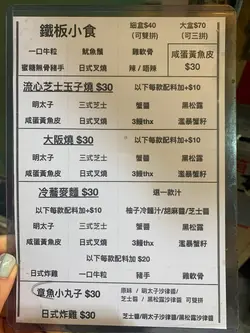 鐵板小食 細盒$40 大盒$70
(可雙拼) (可三拼)
一口牛粒 魷魚鬚 雞軟骨 咸蛋黃魚皮
蜜糖無骨豬手 日式叉燒 辣 / 唔辣 $30
流心芝士玉子燒 $30 以下每款配料加+$10
明太子 三式芝士 蟹醬 黑松露
咸蛋黃魚皮 日式叉燒 3饅thx 濫暴蟹籽
大阪燒 $30 以下每款配料加+$10
明太子 三式芝士 蟹醬 黑松露
咸蛋黃魚皮 日式叉燒 3饅thx 濫暴蟹籽
冷蕎麥麵 $30 選一款汁
以下每款配料加+$10 柚子冷麵汁/胡麻醬/芝士醬
明太子 三式芝士 蟹醬 黑松露
咸蛋黃魚皮 3饅thx 濫暴蟹籽
以下每款配料加 $20
日式炸雞 一口牛粒 豬手 雞軟骨
章魚小丸子 $30 原味 / 明太子沙律醬/
芝士醬 / 黑松露沙律醬 可雙拼
日式炸雞 $30 芝士醬/明太子沙律醬/黑松露沙律醬